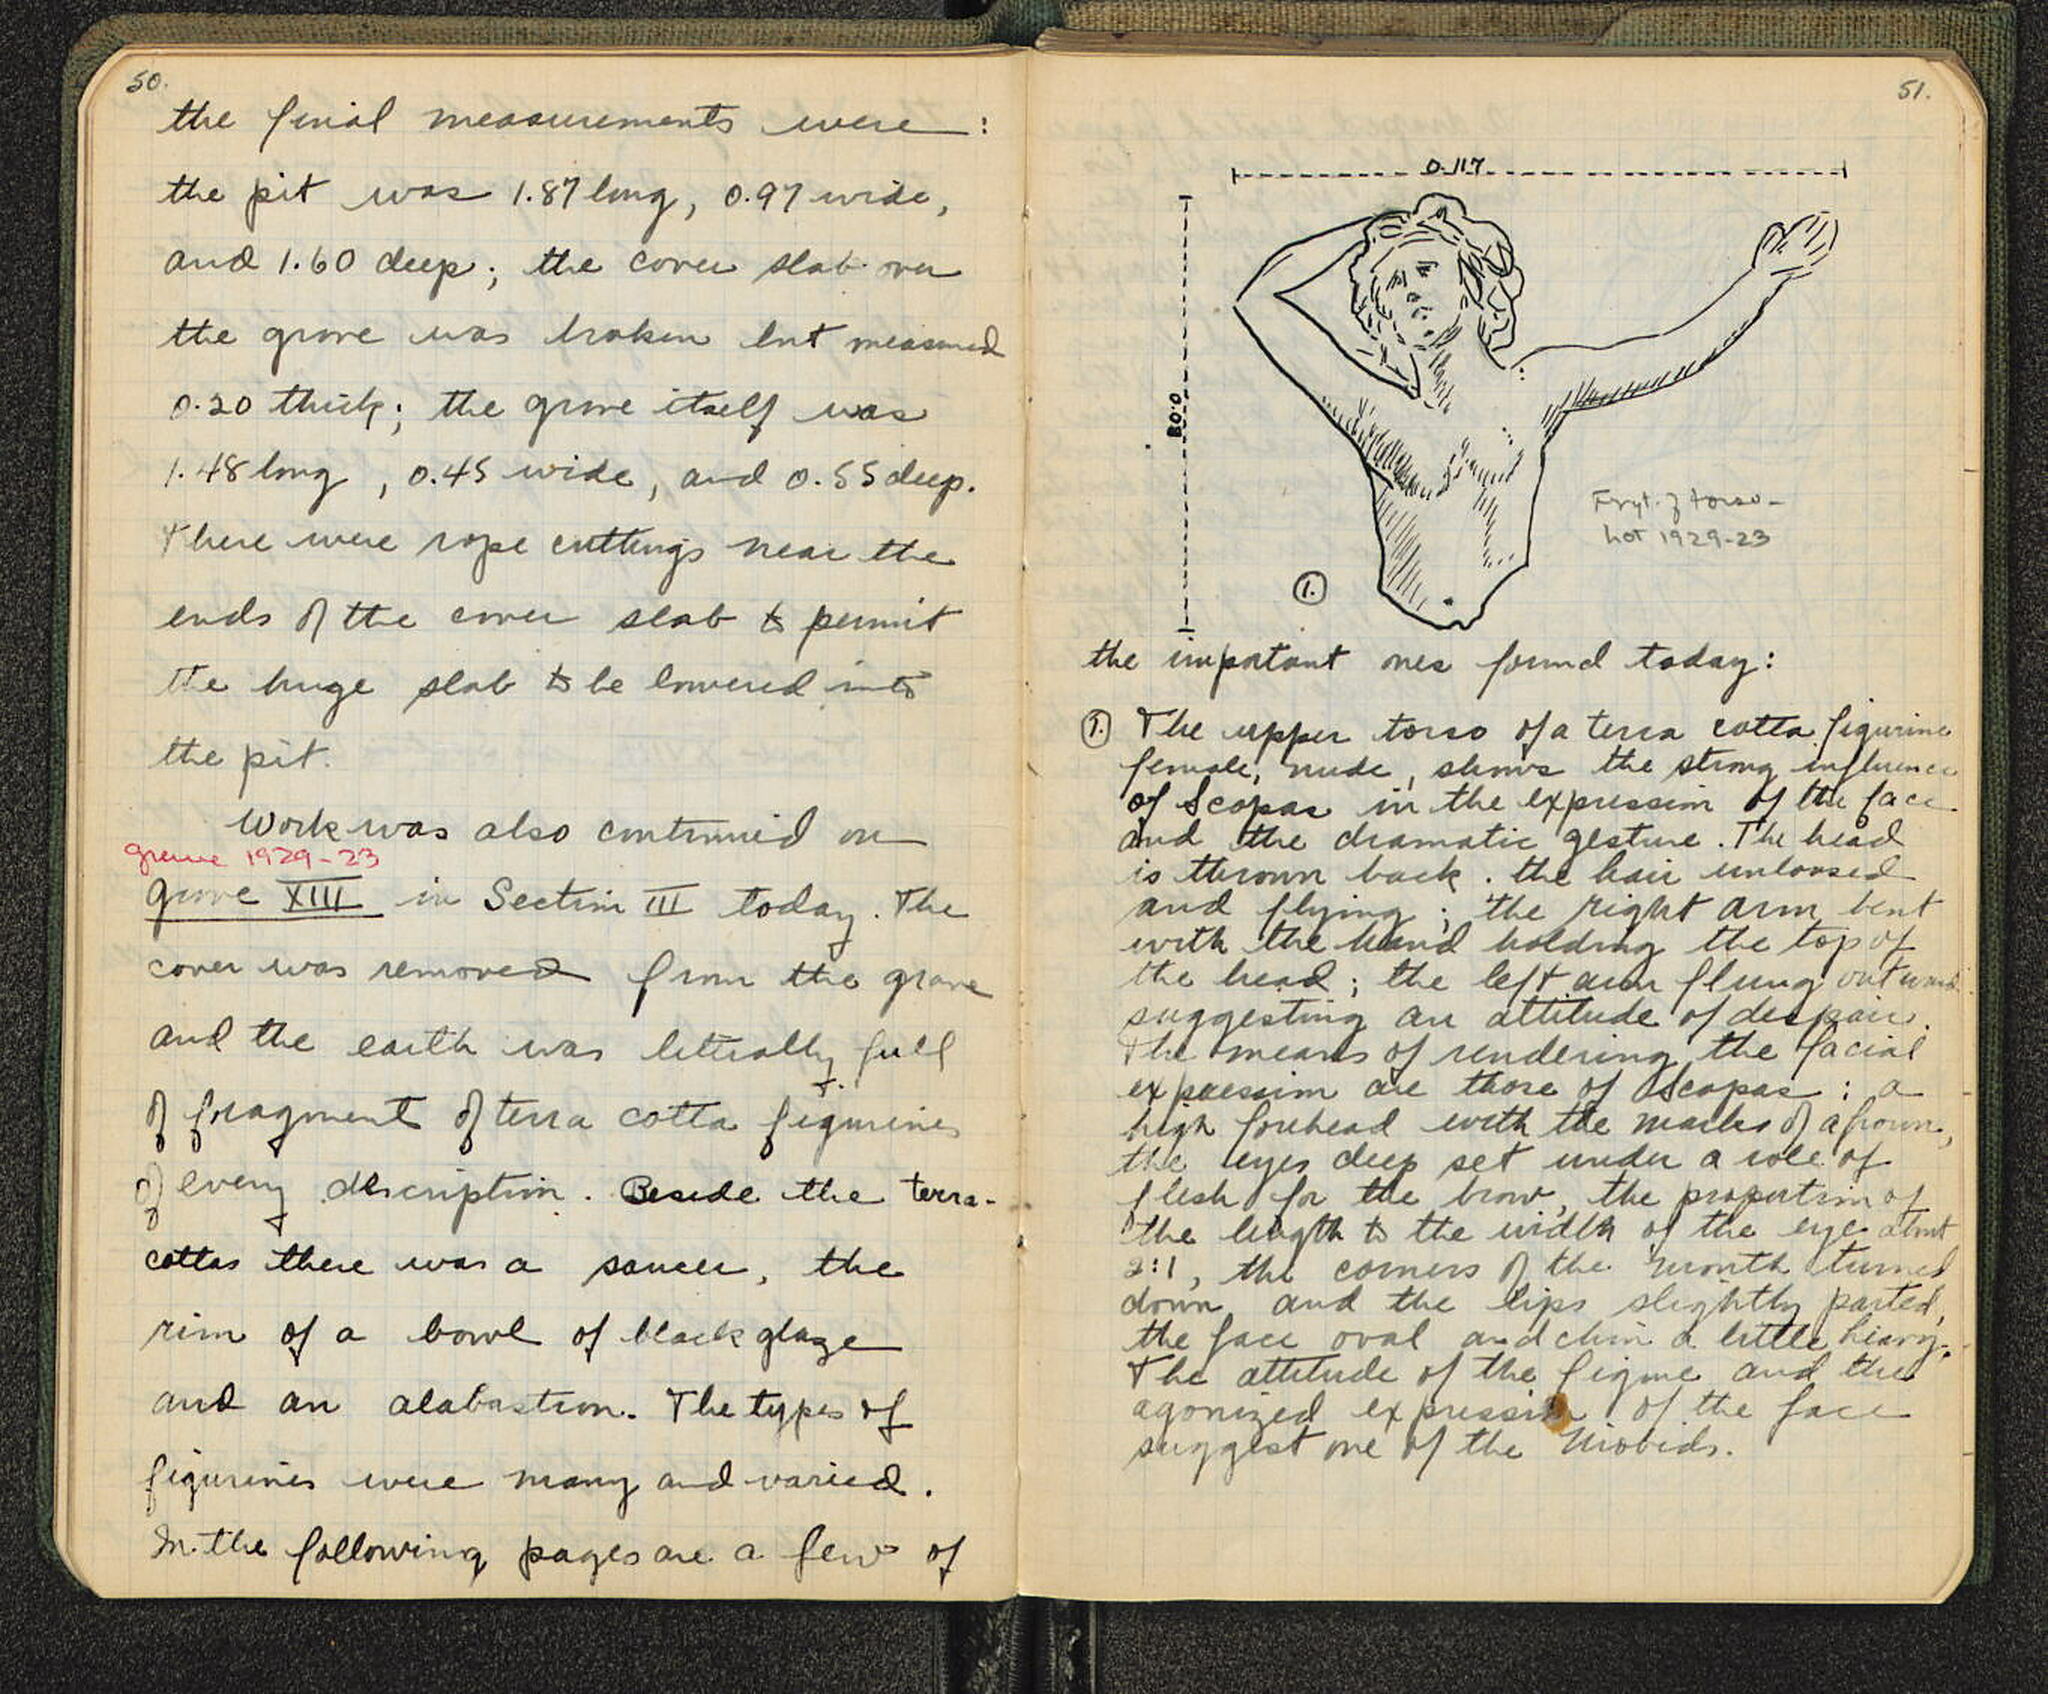 50.
the final measurements were:
the pit was 1.87 long, 0.97 wide,
and 1.60 deep; the cover slab over
the grave was broken but measured
0.20 thick; the grave itself was
1.48 long, 0.45 wide, and 0.55 deep.
There were rope cuttings near the
ends of the cover slab to permit
the huge slab to be lowered into
the pit.
Work was also continued on
grave 1929-23
grave XIII in Section III today. The
cover was removed from the grave
and the earth was literally full
of fragment of terra cotta figurines
of every description. Beside the terra-
cottas there was a saucer, the
rim of a bowl of black glaze
and an alabastron. The types of
figurines were many and varied.
In the following pages are a few of
51.
0.117
0.08
Frgt. of torso-
Lot 1929-23
1.
the important ones found today:
1. The upper torso of a terra cotta figurine
female, nude, shows the strong influence
of Scopas in the expression of the face
and the dramatic gesture. The head
is thrown back. the hair unloosed
and flying; the right arm bent
with the hand holding the top of
the head; the left arm flung outward
suggesting an attitude of despair.
The means of rendering the facial
expression are those of Scopas: a
high forehead with the marks of a frown,
the eyes deep set under a role of
flesh for the brow, the proportion of
the length to the width of the eye about
2:1, the corners of the mouth turned
down, and the lips slightly parted,
the face oval and chin a little heavy.
The attitude of the figure and the
agonized expression of the face
suggest one of the Niobids.